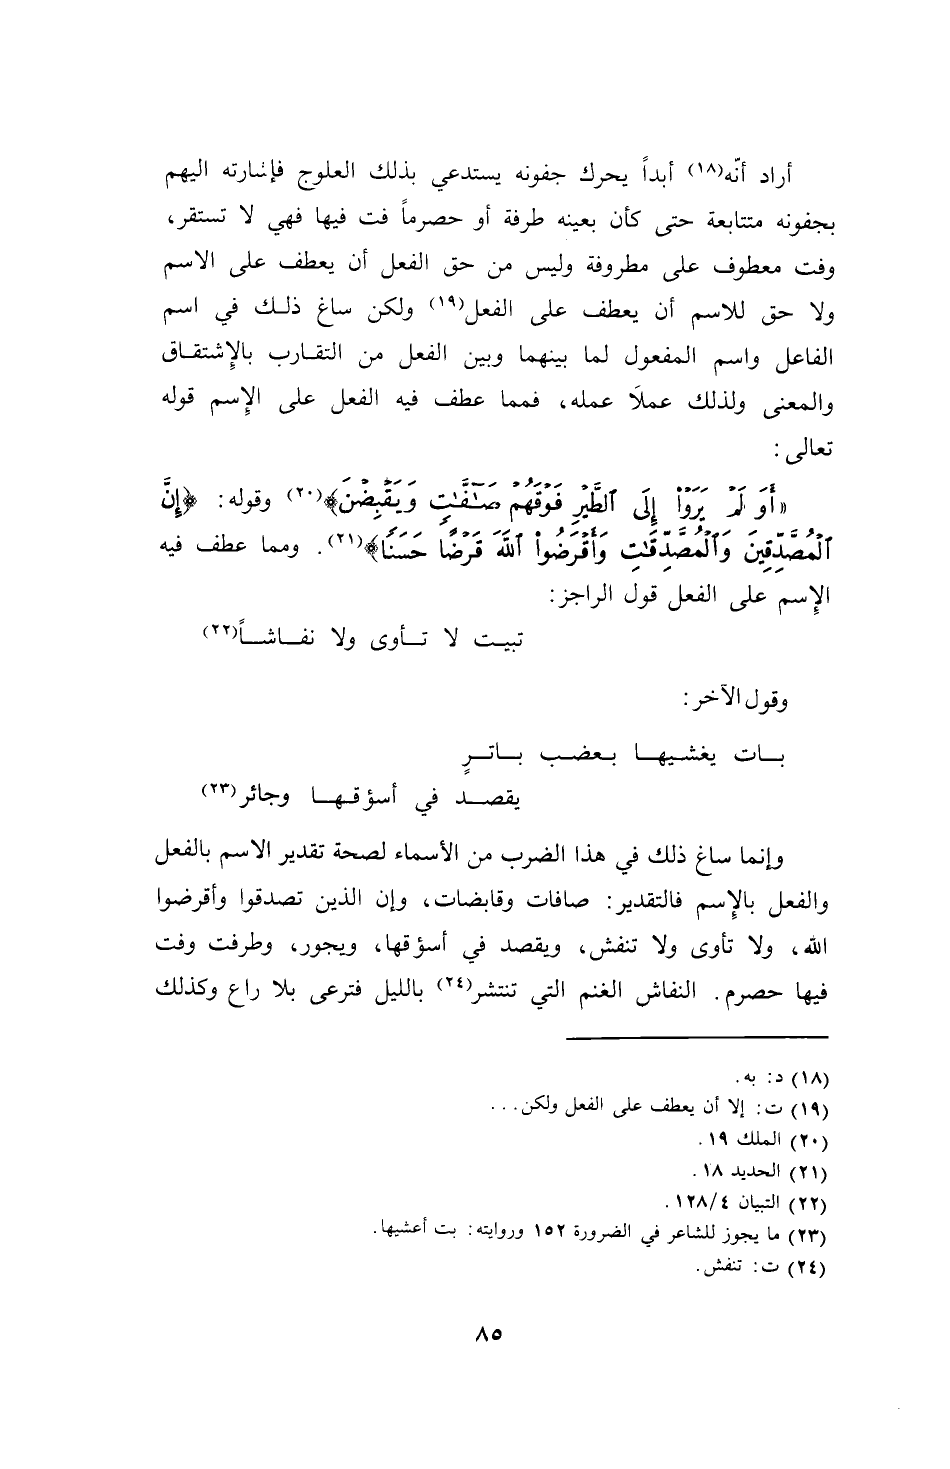 أراد أنّه(١٨) أبداً يحرك جفونه يستدعي بذلك العلوج فإشارته اليهم
بجفونه متتابعة حتى كأن بعينه طرفة أو حصرماً فت فيها فهي لا تستقر،
وفت معطوف على مطروفة وليس من حق الفعل أن يعطف على الاسم
ولا حق للاسم أن يعطف على الفعل(١٩) ولكن ساغ ذلك في اسم
الفاعل واسم المفعول لما بينهما وبين الفعل من التقارب بالإشتقاق
والمعنى ولذلك عملَا عمله، فمما عطف فيه الفعل على الإسم قوله
تعالى:
«أَوَ لَمْ يَرَوْاْ إِلَى ٱلطَّيْرِ فَوْقَهُمْ صَـٰٓفَّـٰتٍ وَيَقْبِضْنَ﴾(٢٠) وقوله: ﴿إِنَّ
ٱلْمُصَّدِّقِينَ وَٱلْمُصَّدِّقَـٰتِ وَأَقْرَضُواْ ٱللَّهَ قَرْضًا حَسَنًا﴾(٢١). ومما عطف فيه
الإسم على الفعل قول الراجز:
تبيت لا تأوى ولا نفاشاً(٢٢)
وقول الآخر:
بات يغشيها بعضب باترٍ
يقصد في أسؤقها وجائر(٢٣)
وإنما ساغ ذلك في هذا الضرب من الأسماء لصحة تقدير الاسم بالفعل
والفعل بالإسم فالتقدير: صافات وقابضات، وإن الذين تصدقوا وأقرضوا
الله، ولا تأوى ولا تنفش، ويقصد في أسؤقها، ويجور، وطرفت وفت
فيها حصرم. النفاش الغنم التي تنتشر(٢٤) بالليل فترعى بلا راع وكذلك
(١٨) د: به.
(١٩) ت: إلا أن يعطف على الفعل ولكن...
(٢٠) الملك ١٩.
(٢١) الحديد ١٨.
(٢٢) التبيان ٤/١٢٨.
(٢٣) ما يجوز للشاعر في الضرورة ١٥٢ وروايته: بت أعشيها.
(٢٤) ت: تنفش.
٨٥